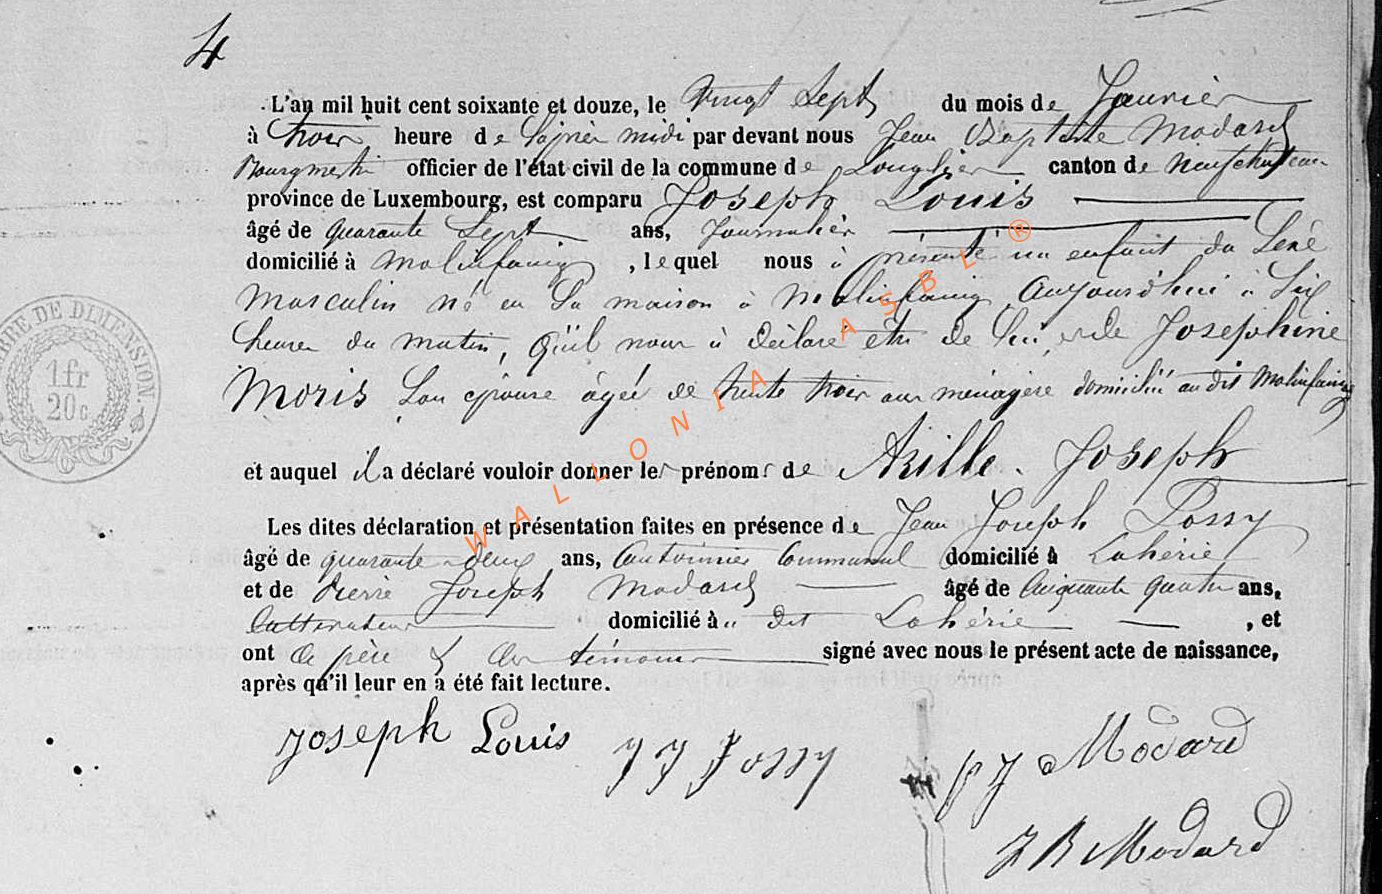 4
L'an mil huit cent soixante et douze, le vingt sept du mois de Janvier
à trois heure de l'après midi par devant nous Jean Baptiste Modard
Bourgmestre officier de l'état civil de la commune de Longlier canton de Neufchateau
province de Luxembourg, est comparu Joseph Louis
âgé de quarante sept ans, Journalier
domicilié à Molinfaing, lequel nous à présenté un enfant du Sexe
Masculin né en Sa maison à Molinfaing Aujourd'hui à Six
heures du matin, qu'il nous à déclaré être de lui et de Josephine
Moris Son épouse âgée de trente trois ans ménagère domicilié au dit Molinfaing
et auquel il a déclaré vouloir donner les prénoms de Joseph
Les dites déclaration et présentation faites en présence de Jean Joseph Possy
âgé de quarante deux ans, Cantonnier Communal domicilié à Lahérie
et de Pierre Joseph Modard âgé de Cinquante quatre ans,
Cultivateur domicilié à u dit Lahérie, et
ont le père & les témoins signé avec nous le présent acte de naissance,
après qu'il leur en a été fait lecture.
Joseph Louis J J Possy P J Modard
J B Modard
TIMBRE DE DIMENSION.
1fr
20c
WALLONIA ASBL ®